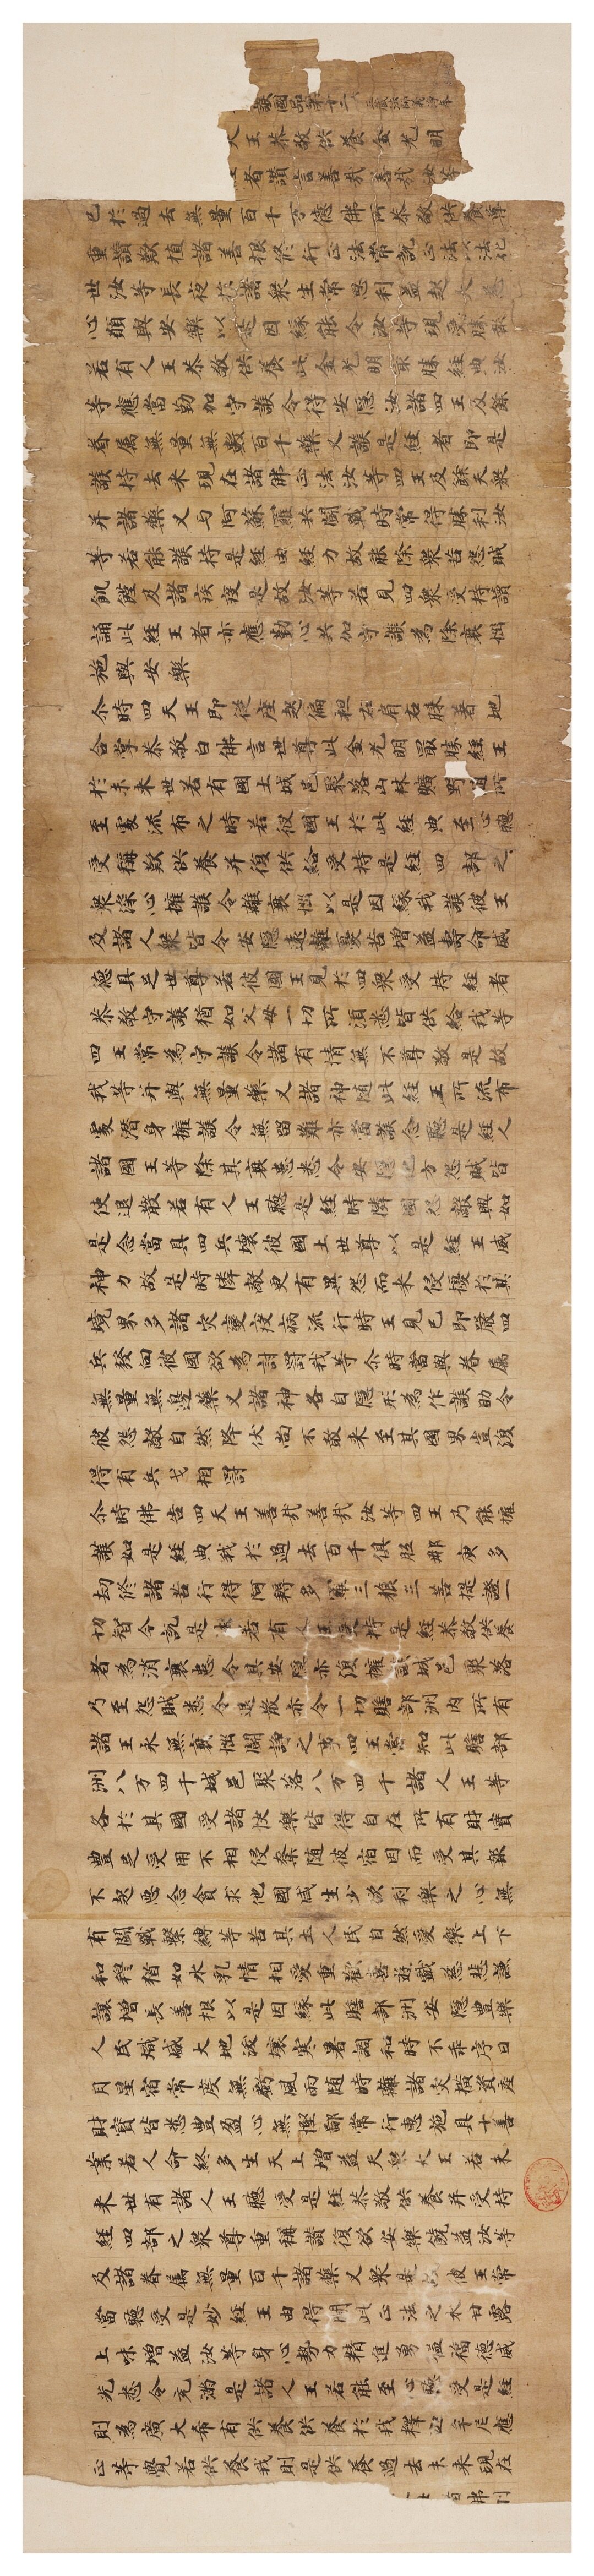 護國品第十二
大王恭敬供養金光明
者讚言善哉善哉汝等
已於過去無量百千万億佛所恭敬供養尊
重讚歎植諸善根修行正法常說正法以法化
世汝等長夜於諸衆生常思利益起大慈
心願與安樂以是因緣能令汝等現受勝報
若有人王恭敬供養此金光明最勝經典汝
等應當勤加守護令得安隱汝諸四王及餘
眷属無量無數百千藥叉護是經者即是
護持去来現在諸佛正法汝等四王及餘天衆
并諸藥叉与阿蘇羅共鬪戰時常得勝利汝
等若能護持是經由經力故能除衆苦怨賊
飢饉及諸疾疫是故汝等若見四衆受持讀
誦此經王者亦應勤心共加守護為除衰惱
施與安樂
尒時四天王即從座起偏袒右肩右膝著地
合掌恭敬白佛言世尊此金光明最勝經王
於未来世若有國土城邑聚落山林曠野随所
至處流布之時若彼國王於此經典至心聽
受稱歎供養并復供給受持是經四部之
衆深心擁護令離衰惱以是因緣我護彼王
及諸人衆皆令安隱遠離憂苦增益壽命威
德具足世尊若彼國王見於四衆受持經者
恭敬守護猶如父母一切所須悉皆供給我等
四王常為守護令諸有情無不尊敬是故
我等并與無量藥叉諸神随此經王所流布
處潛身擁護令無留難亦當護念聽是經人
諸國王等除其衰患悉令安隱他方怨賊皆
使退散若有人王聽是經時隣國怨敵興如
是念當具四兵壞彼國土世尊以是經王威
神力故是時隣敵更有異怨而来侵擾於其
境界多諸災變疫病流行時王見已即嚴四
兵發向彼國欲為討罰我等尒時當與眷属
無量無邊藥叉諸神各自隱形為作護助令
彼怨敵自然降伏尚不敢来至其國界豈復
得有兵戈相罰
尒時佛告四天王善哉善哉汝等四王乃能擁
護如是經典我於過去百千俱胝那庾多
劫修諸苦行得阿耨多羅三藐三菩提證一
切智今說是法若有人王受持是經恭敬供養
者為消衰患令其安隱亦復擁護城邑聚落
乃至怨賊悉令退散亦令一切贍部洲内所有
諸王永無衰惱鬪諍之事四王當知此贍部
洲八万四千城邑聚落八万四千諸人王等
各於其國受諸快樂皆得自在所有財寶
豐足受用不相侵奪随彼宿因而受其報
不起惡念貪求他國咸生少欲利樂之心無
有鬪戰繫縛等苦其土人民自然受樂上下
和穆猶如水乳情相愛重歡喜遊戲慈悲謙
讓增長善根以是因緣此贍部洲安隱豐樂
人民熾盛大地沃壤寒暑調和時不乖序日
月星宿常度無虧風雨随時離諸災橫資產
財寶皆悉豐盈心無慳鄙常行惠施具十善
業若人命終多生天上增益天衆大王若未
来世有諸人王聽受是經恭敬供養并受持
經四部之衆尊重稱讚復欲安樂饒益汝等
及諸眷属無量百千諸藥叉衆是故彼王常
當聽受是妙經王由得聞此正法之水甘露
上味增益汝等身心勢力精進勇猛福德威
光悉令充滿是諸人王若能至心聽受是經
則為廣大希有供養供養於我釋迦牟尼應
正等覺若供養我則是供養過去未来現在